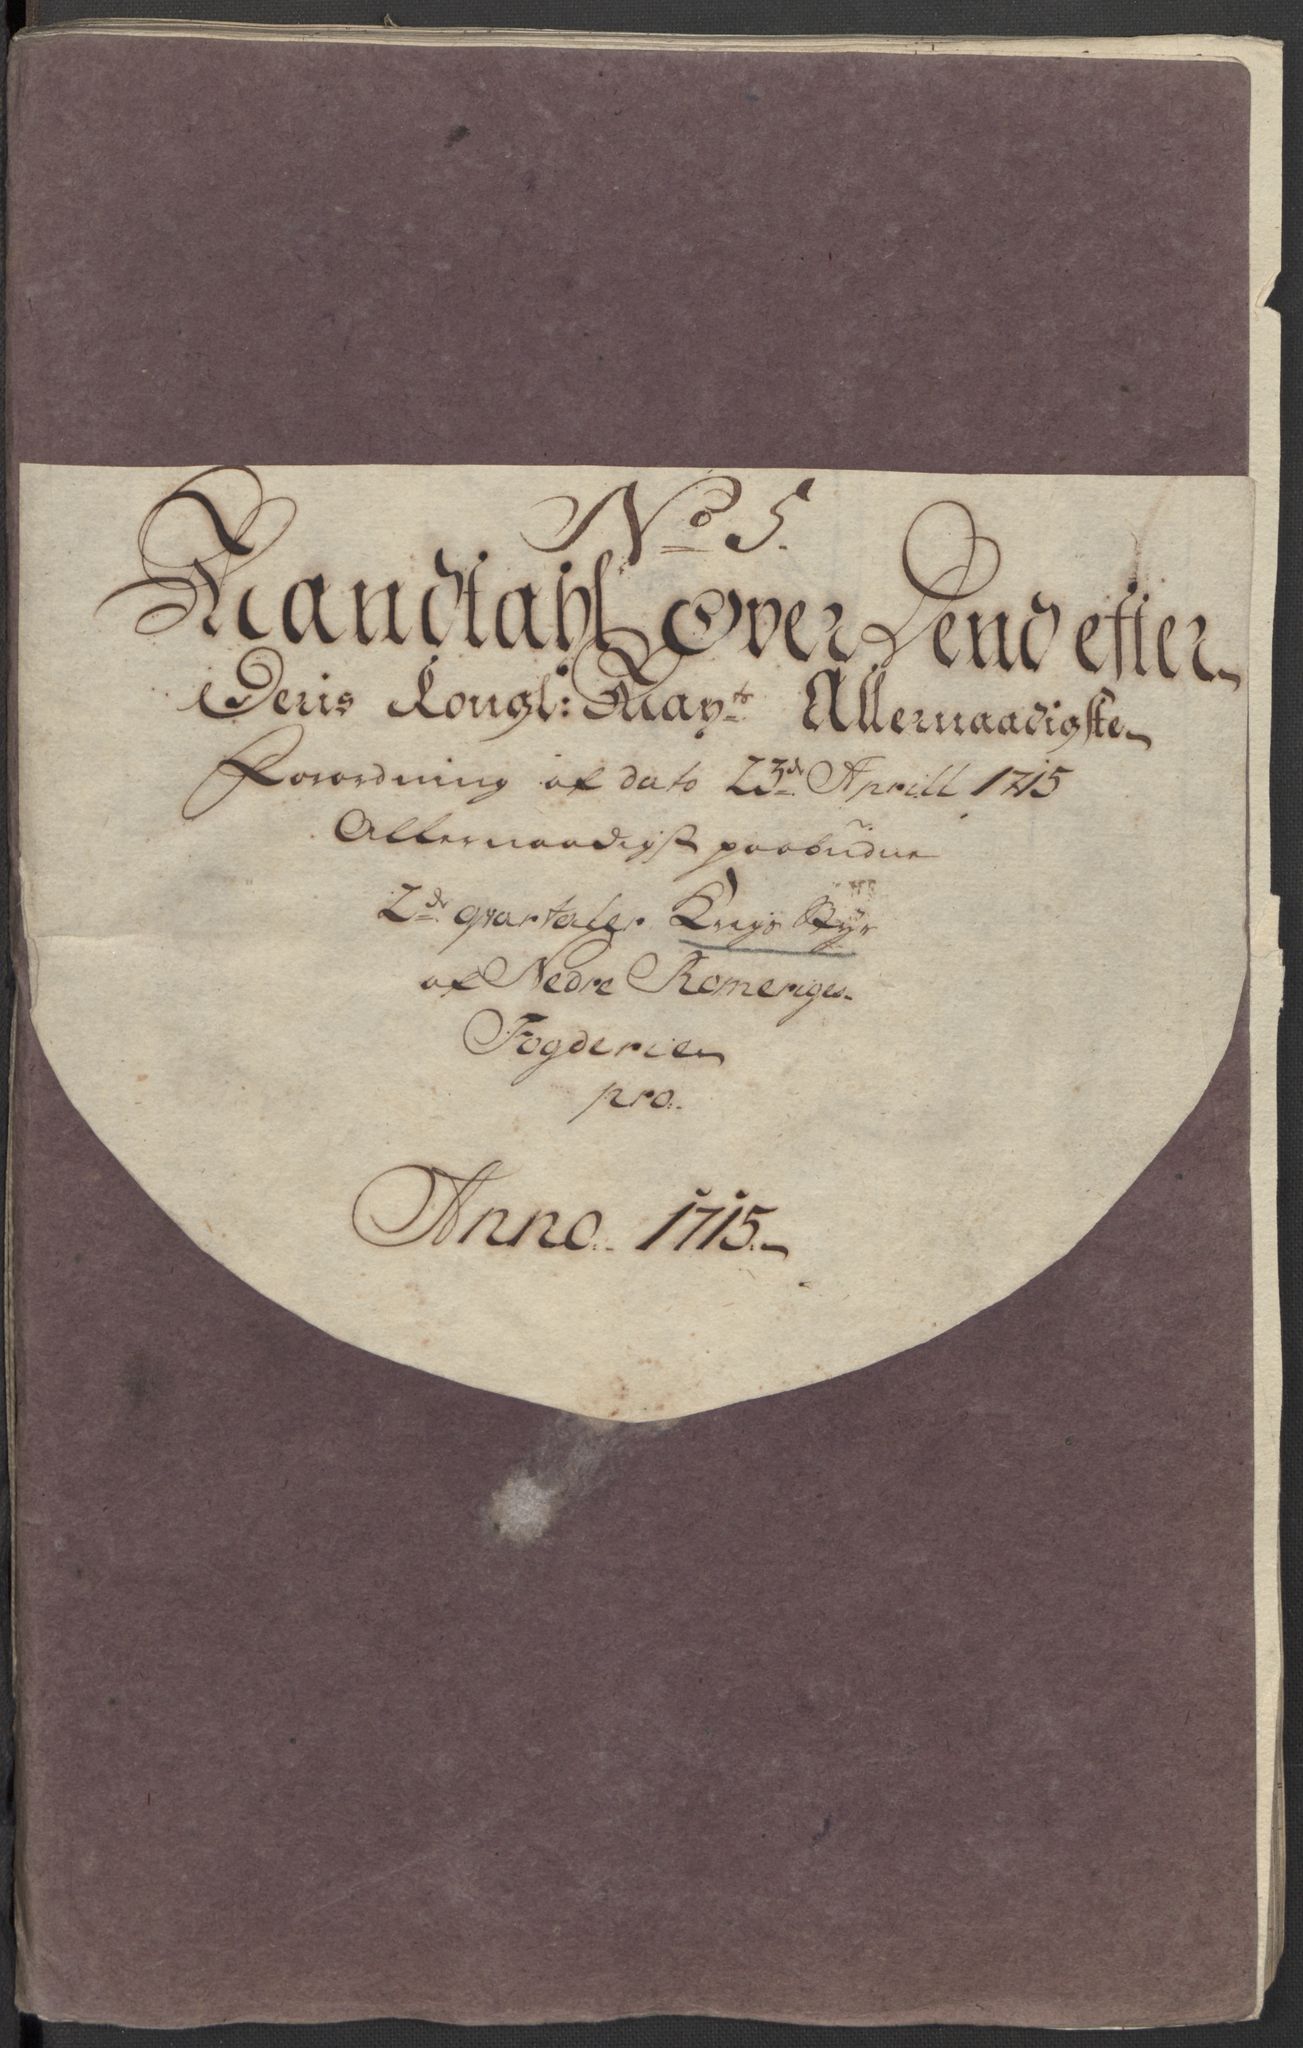 No 5.
Mandtahl Over Dend efter
Deris Kongl: Mayts Allernaadigste
Forordning af dato 23de Aprill 1715
Allernaadigst paabudne
2de qvartaler Krigs Styr
af Nedre Romeriges
Fogderie
pro.
Anno. 1715.